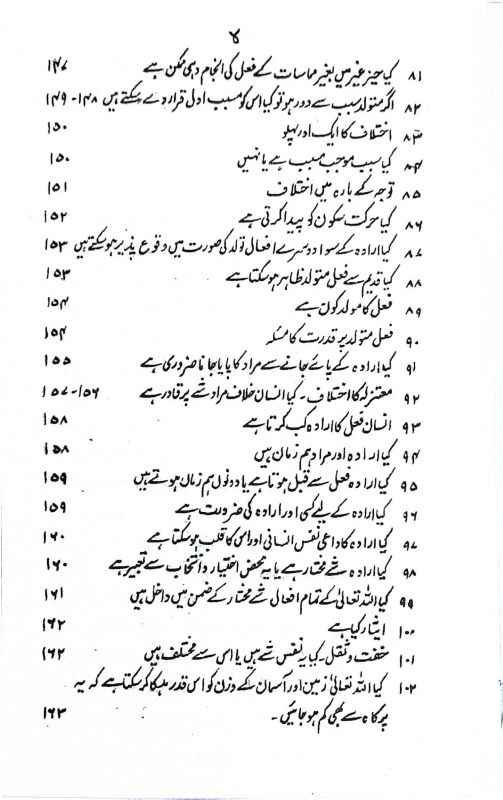 ۷
۸۱ کیا حیز غیر میں بغیر مماسات کے فعل کی انجام دہی ممکن ہے ۱۴۷
۸۲ اگر متولد سبب سے دور ہو تو کیا اس کو مسبب اول قرار دے سکتے ہیں ۱۴۸-۱۴۹
۸۳ اختلاف کا ایک اور پہلو ۱۵۰
۸۴ کیا سبب موجب مسبب ہے یا نہیں ۱۵۰
۸۵ توجہ کے بارہ میں اختلاف ۱۵۱
۸۶ کیا حرکت سکون کو پیدا کرتی ہے ۱۵۲
۸۷ کیا ارادہ کے سوا دوسرے افعال تولد کی صورت میں وقوع پذیر ہو سکتے ہیں ۱۵۳
۸۸ کیا قدیم سے فعل متولد ظاہر ہو سکتا ہے ۱۵۳
۸۹ فعل کا مولد کون ہے ۱۵۴
۹۰ فعل متولد پر قدرت کا مسئلہ ۱۵۴
۹۱ کیا ارادہ کے پائے جانے سے مراد کا پایا جانا ضروری ہے ۱۵۵
۹۲ معتزلہ کا اختلاف۔ کیا انسان خلاف مراد شے پر قادر ہے ۱۵۶-۱۵۷
۹۳ انسان فعل کا ارادہ کب کرتا ہے ۱۵۸
۹۴ کیا ارادہ اور مراد ہم زمان ہیں ۱۵۸
۹۵ کیا ارادہ فعل سے قبل ہوتا ہے یا دونوں ہم زمان ہوتے ہیں ۱۵۹
۹۶ کیا ارادہ کے لیے کسی اور ارادہ کی ضرورت ہے ۱۵۹
۹۷ کیا ارادہ کا داعی نفس انسانی اور اس کا قلب ہو سکتا ہے ۱۶۰
۹۸ کیا ارادہ شے مختار ہے یا یہ محض اختیار و انتخاب سے تعبیر ہے ۱۶۰
۹۹ کیا اللہ تعالیٰ کے تمام افعال شے مختار کے ضمن میں داخل ہیں ۱۶۱
۱۰۰ ایثار کیا ہے ۱۶۲
۱۰۱ خفت و ثقل۔ کیا یہ نفس شے ہیں یا اس سے مختلف ہیں ۱۶۲
۱۰۲ کیا اللہ تعالیٰ زمین اور آسمان کے وزن کو اس قدر ہلکا کر سکتا ہے کہ یہ
پرکاہ سے بھی کم ہو جائیں۔ ۱۶۳